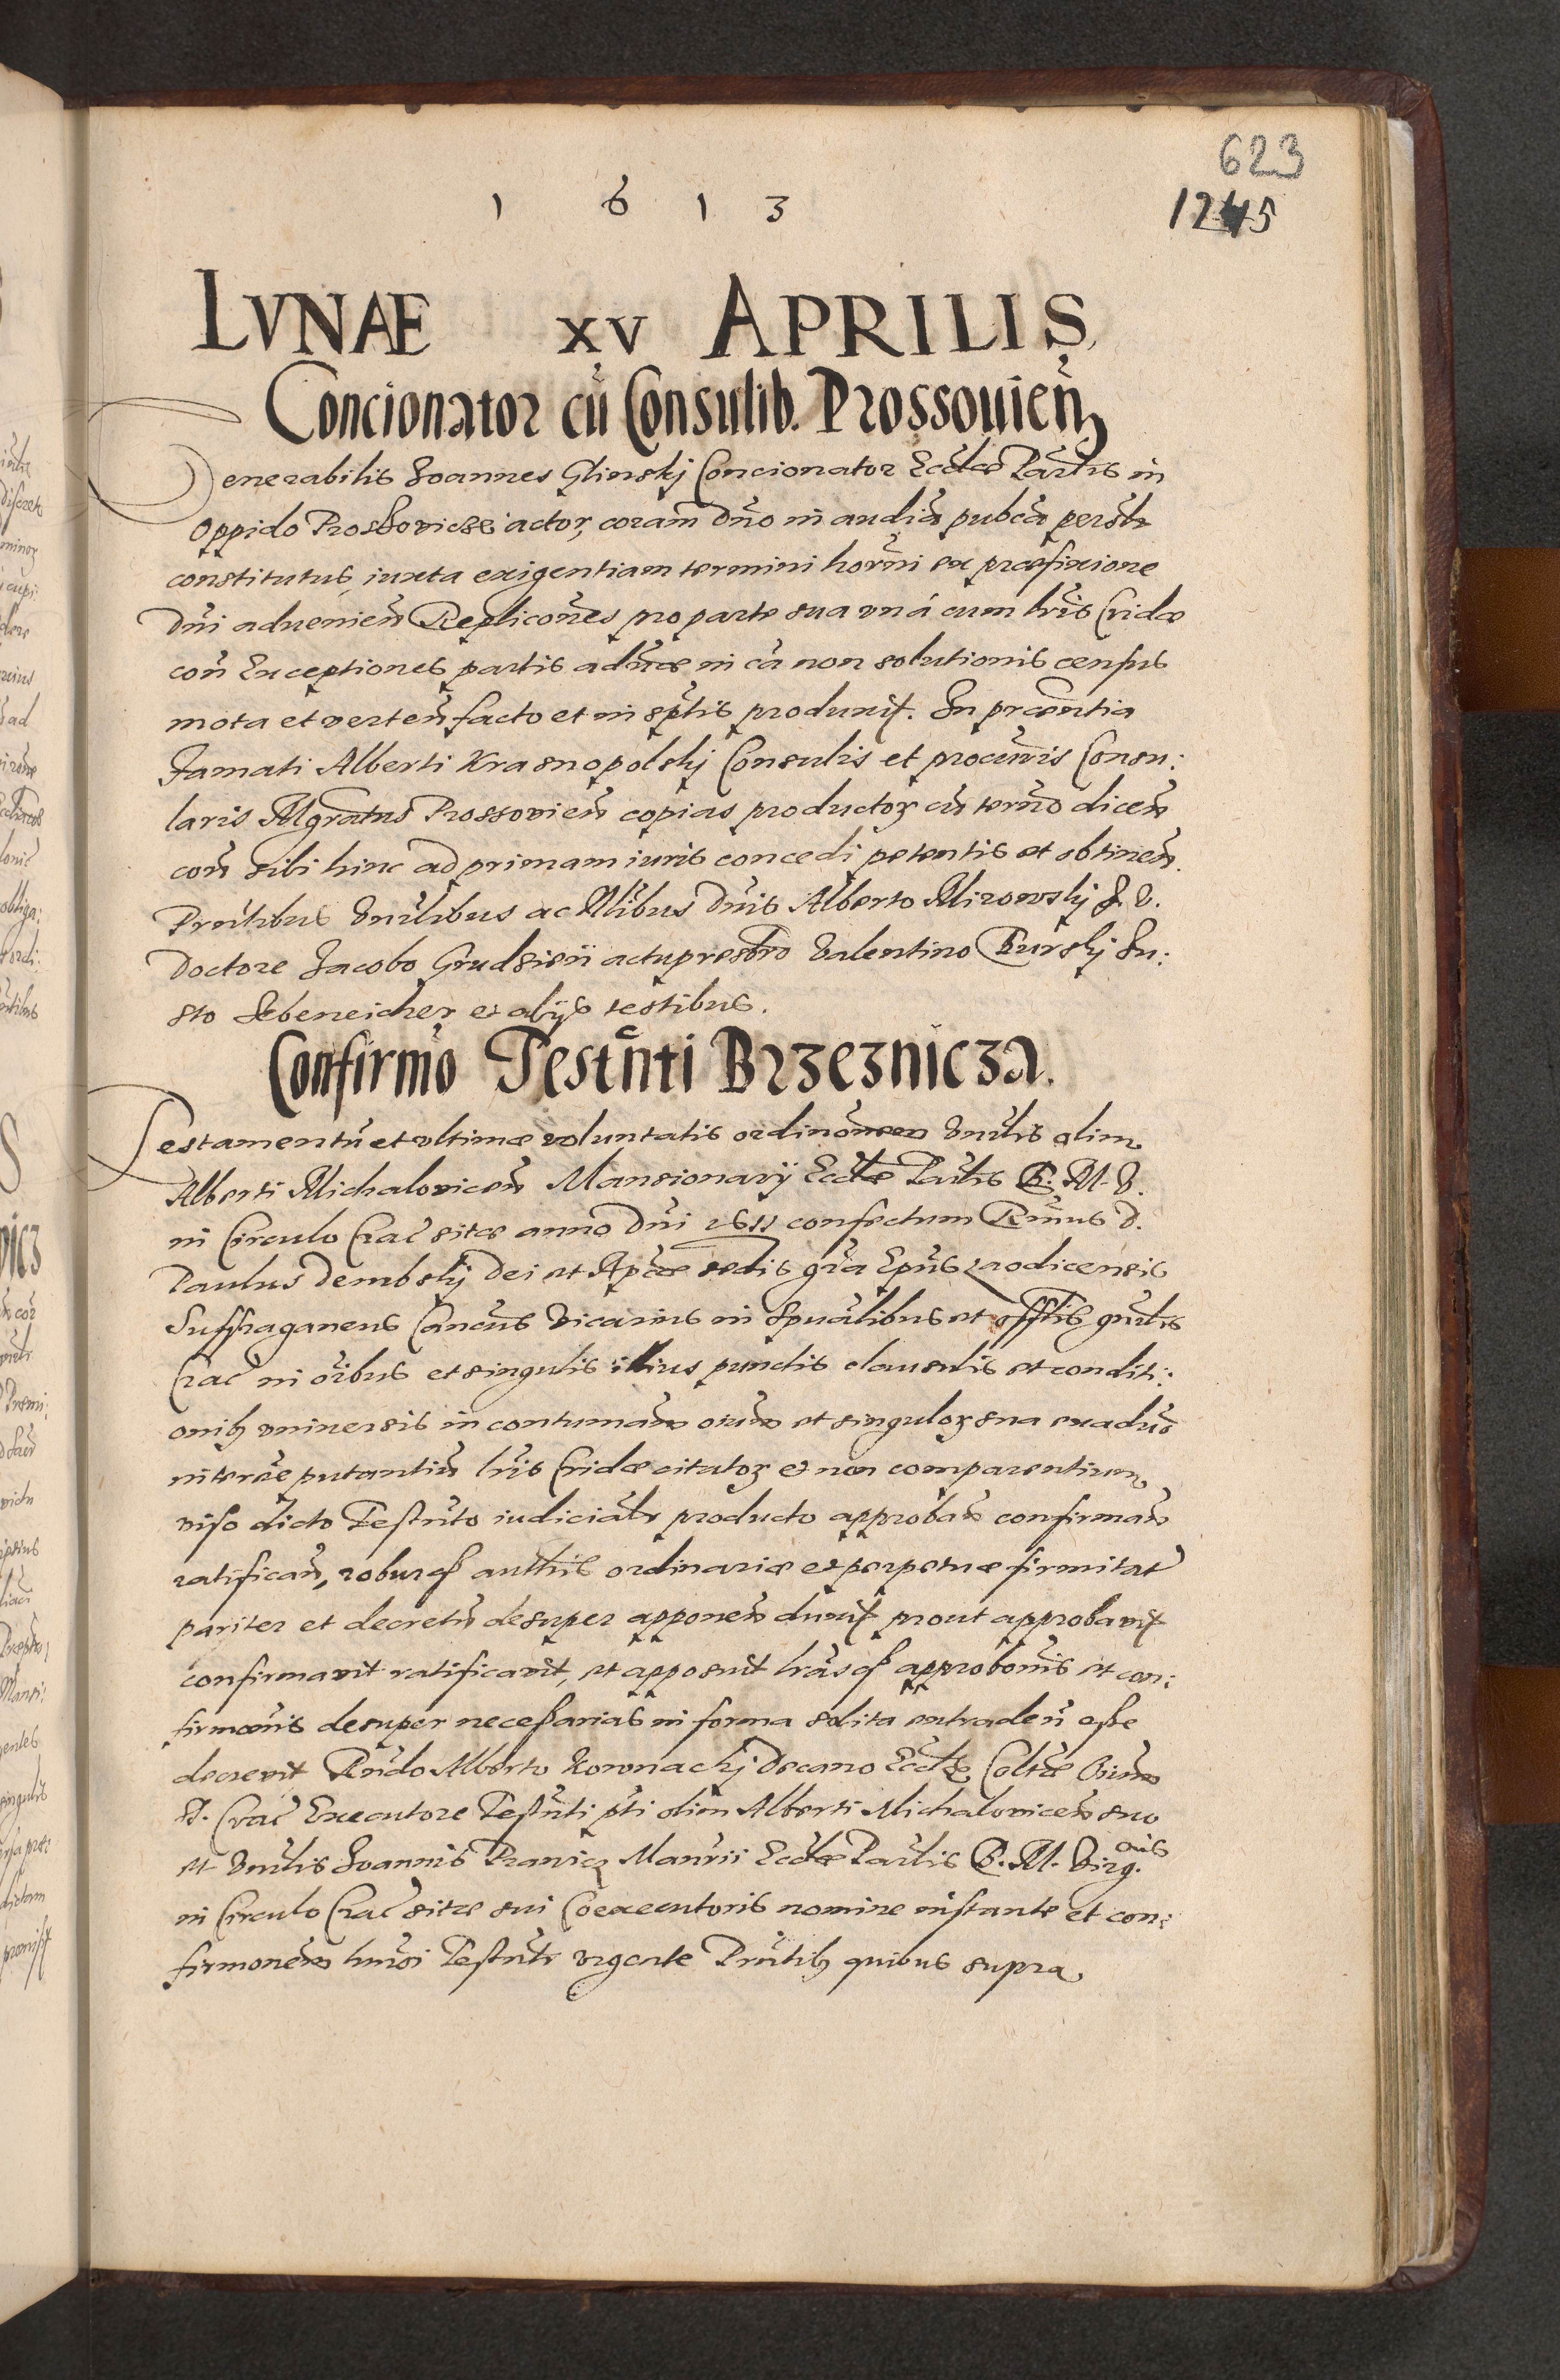 623
1 6 1 3
1245
LVNAE XV APRILIS
Concionator cũ Consulib. Prossouien̄
Venerabilis Joannes Glinskj Concionator Eccl̃æ Parl̃is in
oppido Prossovicze actor, coram Dn̄o in audiã pub̃ca persl̃r
constitutus, iuxta exigentiam termini hor̄ni ex præfixione
Dn̄i advenien̄ Replico̅nes pro parte sua vná cum lr̄is Cridæ
con̄ Exceptiones partis adv̄ræ in cã non solutionis census
mota et verten̄ facto et in sp̄tis produxit. In præn̄tia
Famati Alberti Krasnopolskj Consulis et procur̄is Consu:
laris Mgr̄atus Prossovien̄ copias productoꝝ cū termō dicen̄
con̄ sibi hinc ad primam iuris concedi petentis et obtinen̄.
Prn̄tibus Vn̄libus ac Nl̄ibus Dn̄is Alberto Mirowskj J. V.
Doctore Jacobo Grudsien̄ actupresb̄ro Valentino Turskj Ju:
sto Sebeneicher et alijs testibus.
Confirmo̅ Testm̄ti Brzeznicza.
Testamentū et vltimæ voluntatis ordino̅nem Vn̄lis olim
Alberti Michalovicen̄ Mansionarij Eccl̃æ Parl̃is B. M. V.
in Circulo Crac̄ sitæ anno Dn̄i 1611 confectum Rm̄us D.
Paulus Dembskj Dei et Ap̄cæ sedis gr̄a Ep̄us Laodicensis
Suffraganeus Can̄cus Vicarius in Spūalibus et Offl̄is gn̄lis
Crac̄ in oībus et singulis illius punctis clausulis et conditi:
onibꝫ vniuersis in contumam̄ oīum et singuloꝝ sua quaduis
interēe putantiū lr̄is Cridæ citatoꝝ et non comparentium
viso dicto Testm̄to iudicial̃r producto approban̄ confirman̄
ratifican̄, roburqꝫ auth̄is ordinariæ et perpetuæ firmitat̄
pariter et decretū desuper apponen̄ duxit prout approbavit
confirmavit ratificavit, et apposuit lr̄asqꝫ approbo̅nis et con:
firmo̅nis desuper necessarias in forma solita extraden̄ esse
decrevit Rn̄do Alberto Koronackj Decano Eccl̃æ Col̃tæ Oīum
S. Crac̄ Executore Testm̄ti p̄ti olim Alberti Michalovicen̄ suo
et Vn̄lis Joannis Prawicz Mans̄rii Eccl̃æ Parl̃is B. M. Virg.inis
in Circulo Crac̄ sitæ sui Coexecutoris nomine instante et con:
firmonem hm̄oi Testm̄ti vrgente Prn̄tibꝫ quibus supra